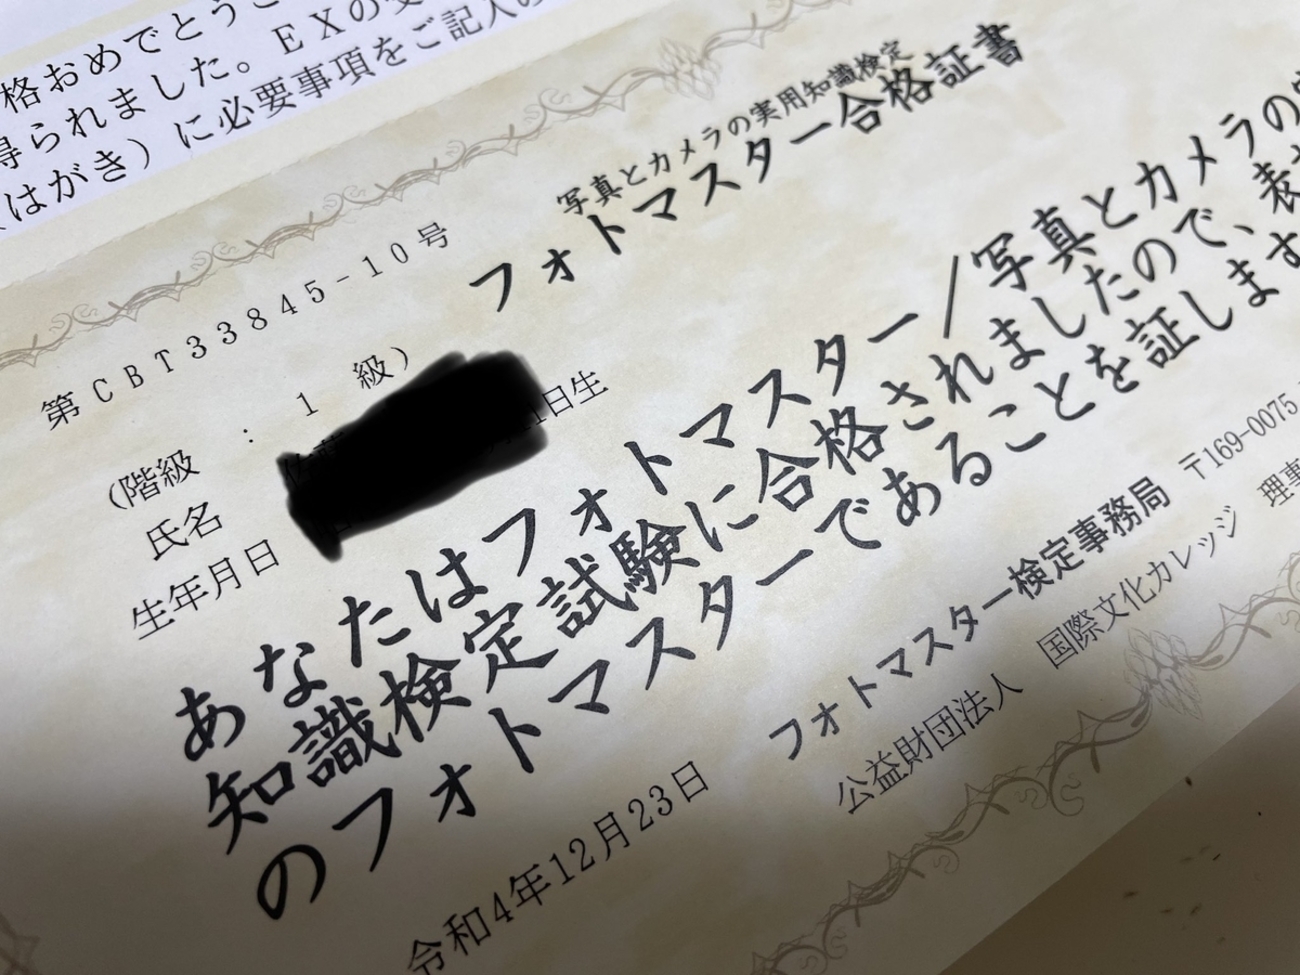 格おめでとうご
得られました。ＥＸの受
はがき）に必要事項をご記入の
写真とカメラの実用知識検定
フォトマスター合格証書
第ＣＢＴ３３８４５－１０号
(階級 : 1 級)
氏名
生年月日 1日生
あなたはフォトマスター/写真とカメラの実
知識検定試験に合格されましたので、表
のフォトマスターであることを証します
令和4年12月23日
フォトマスター検定事務局 〒169-0075
公益財団法人 国際文化カレッジ 理事